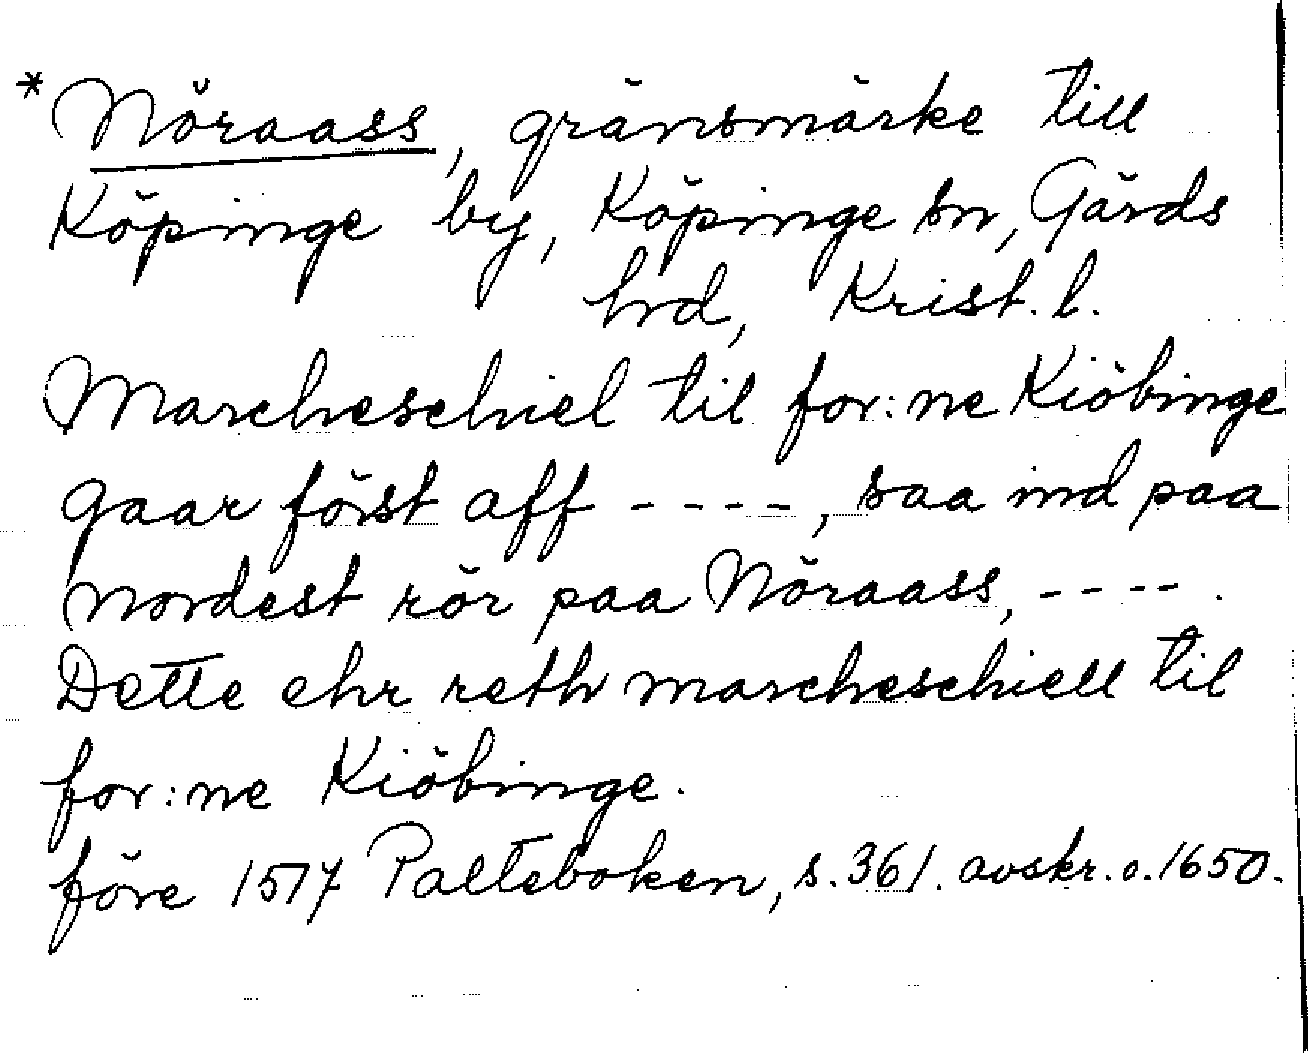 * Nöraass, gränsmärke till
Köpinge by, Köpinge sn, Gärds
hrd, Krist. l.
Marcheschiel til for:ne Kiöbinge
gaar först aff ----, saa ind paa
nordest rör paa Nöraass, ----.
Dette ehr reth marcheschiell til
for:ne Kiöbinge.
före 1517 Palteboken, s. 361. avskr. o. 1650.